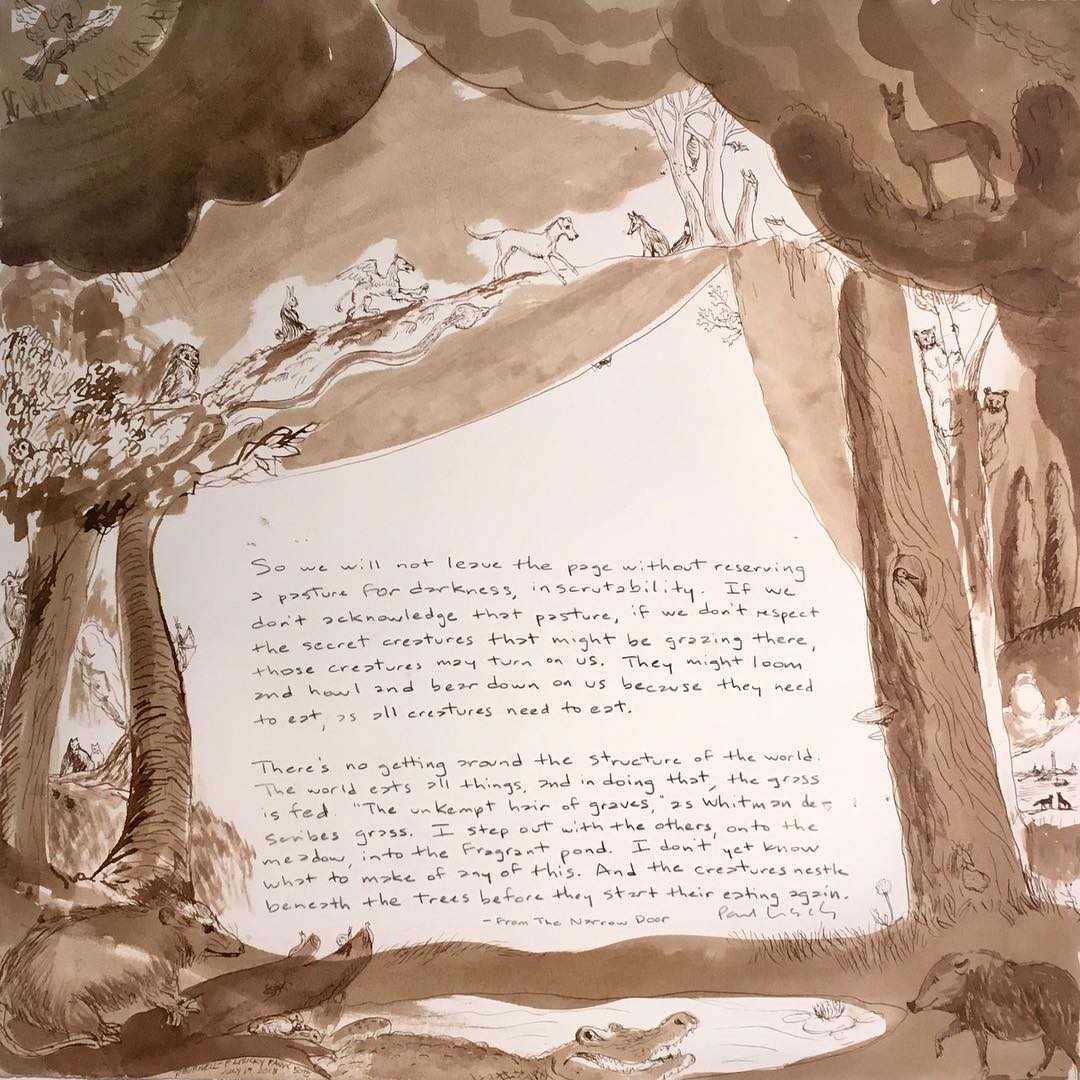 So we will not leave the page without reserving
a pasture for darkness, inscrutability. If we
don't acknowledge that pasture, if we don't respect
the secret creatures that might be grazing there,
those creatures may turn on us. They might loom
and howl and bear down on us because they need
to eat, as all creatures need to eat.
There's no getting around the structure of the world.
The world eats all things, and in doing that, the grass
is fed. "The unkempt hair of graves," as Whitman de-
scribes grass. I step out with the others, onto the
meadow, into the fragrant pond. I don't yet know
what to make of any of this. And the creatures nestle
beneath the trees before they start their eating again.
- From The Narrow Door
Paul
JULY 19 2018